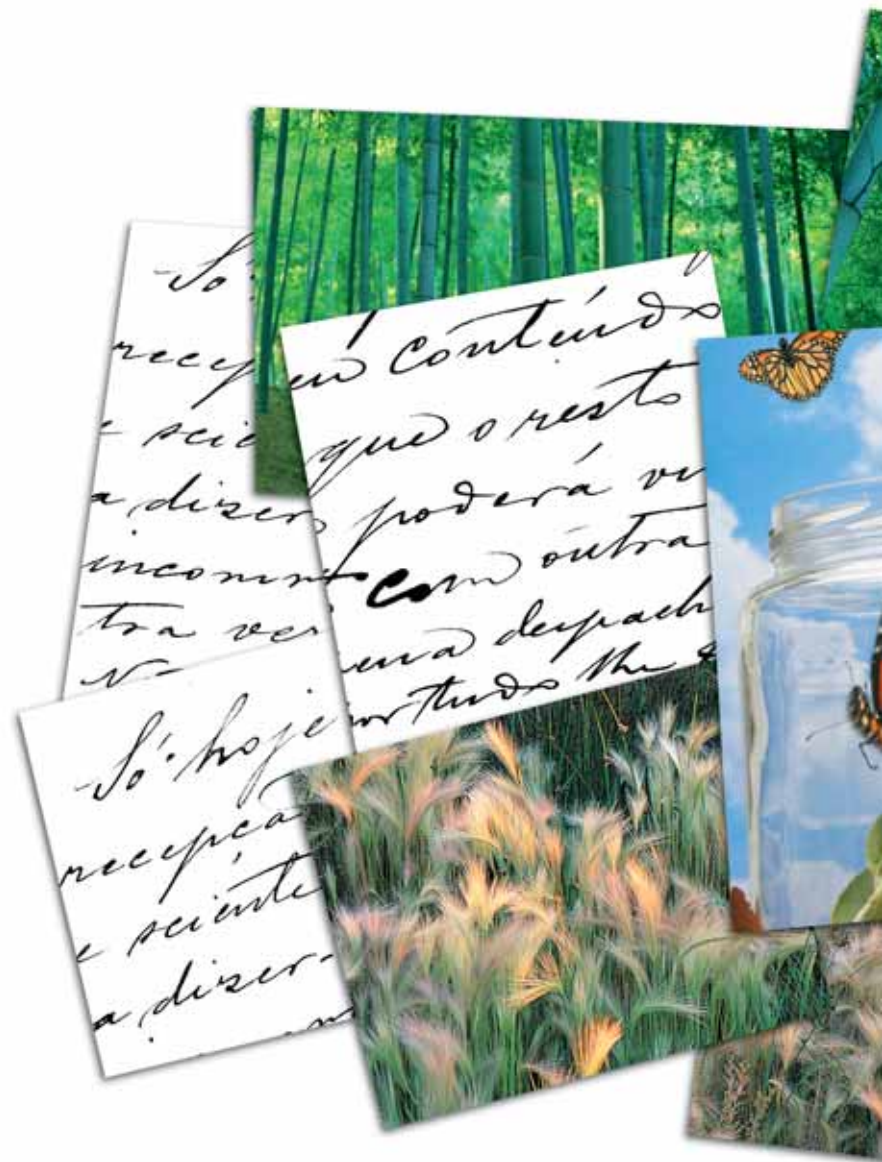 Só
recep
e scie
a dizer
incomm
tra vez
eu contéudo
que o resto
poderá vi
com outra
ena despach
por tudo lhe
Só hoje
recepçã
e sciente
a dizer-